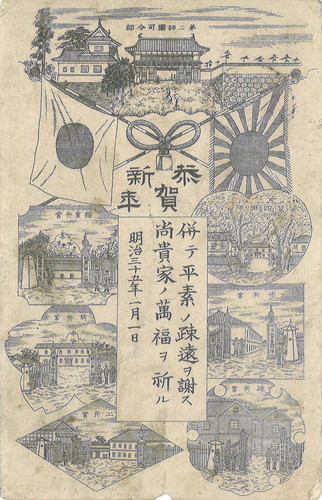 第二師團司令部
恭賀新年
併テ平素ノ疎遠ヲ謝ス
尚貴家ノ萬福ヲ祈ル
明治三十五年一月一日
輜重兵營
騎兵營
工兵營
砲兵營